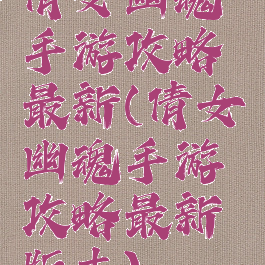 倩女幽魂
手游攻略
最新(倩女
幽魂手游
攻略最新
版本)